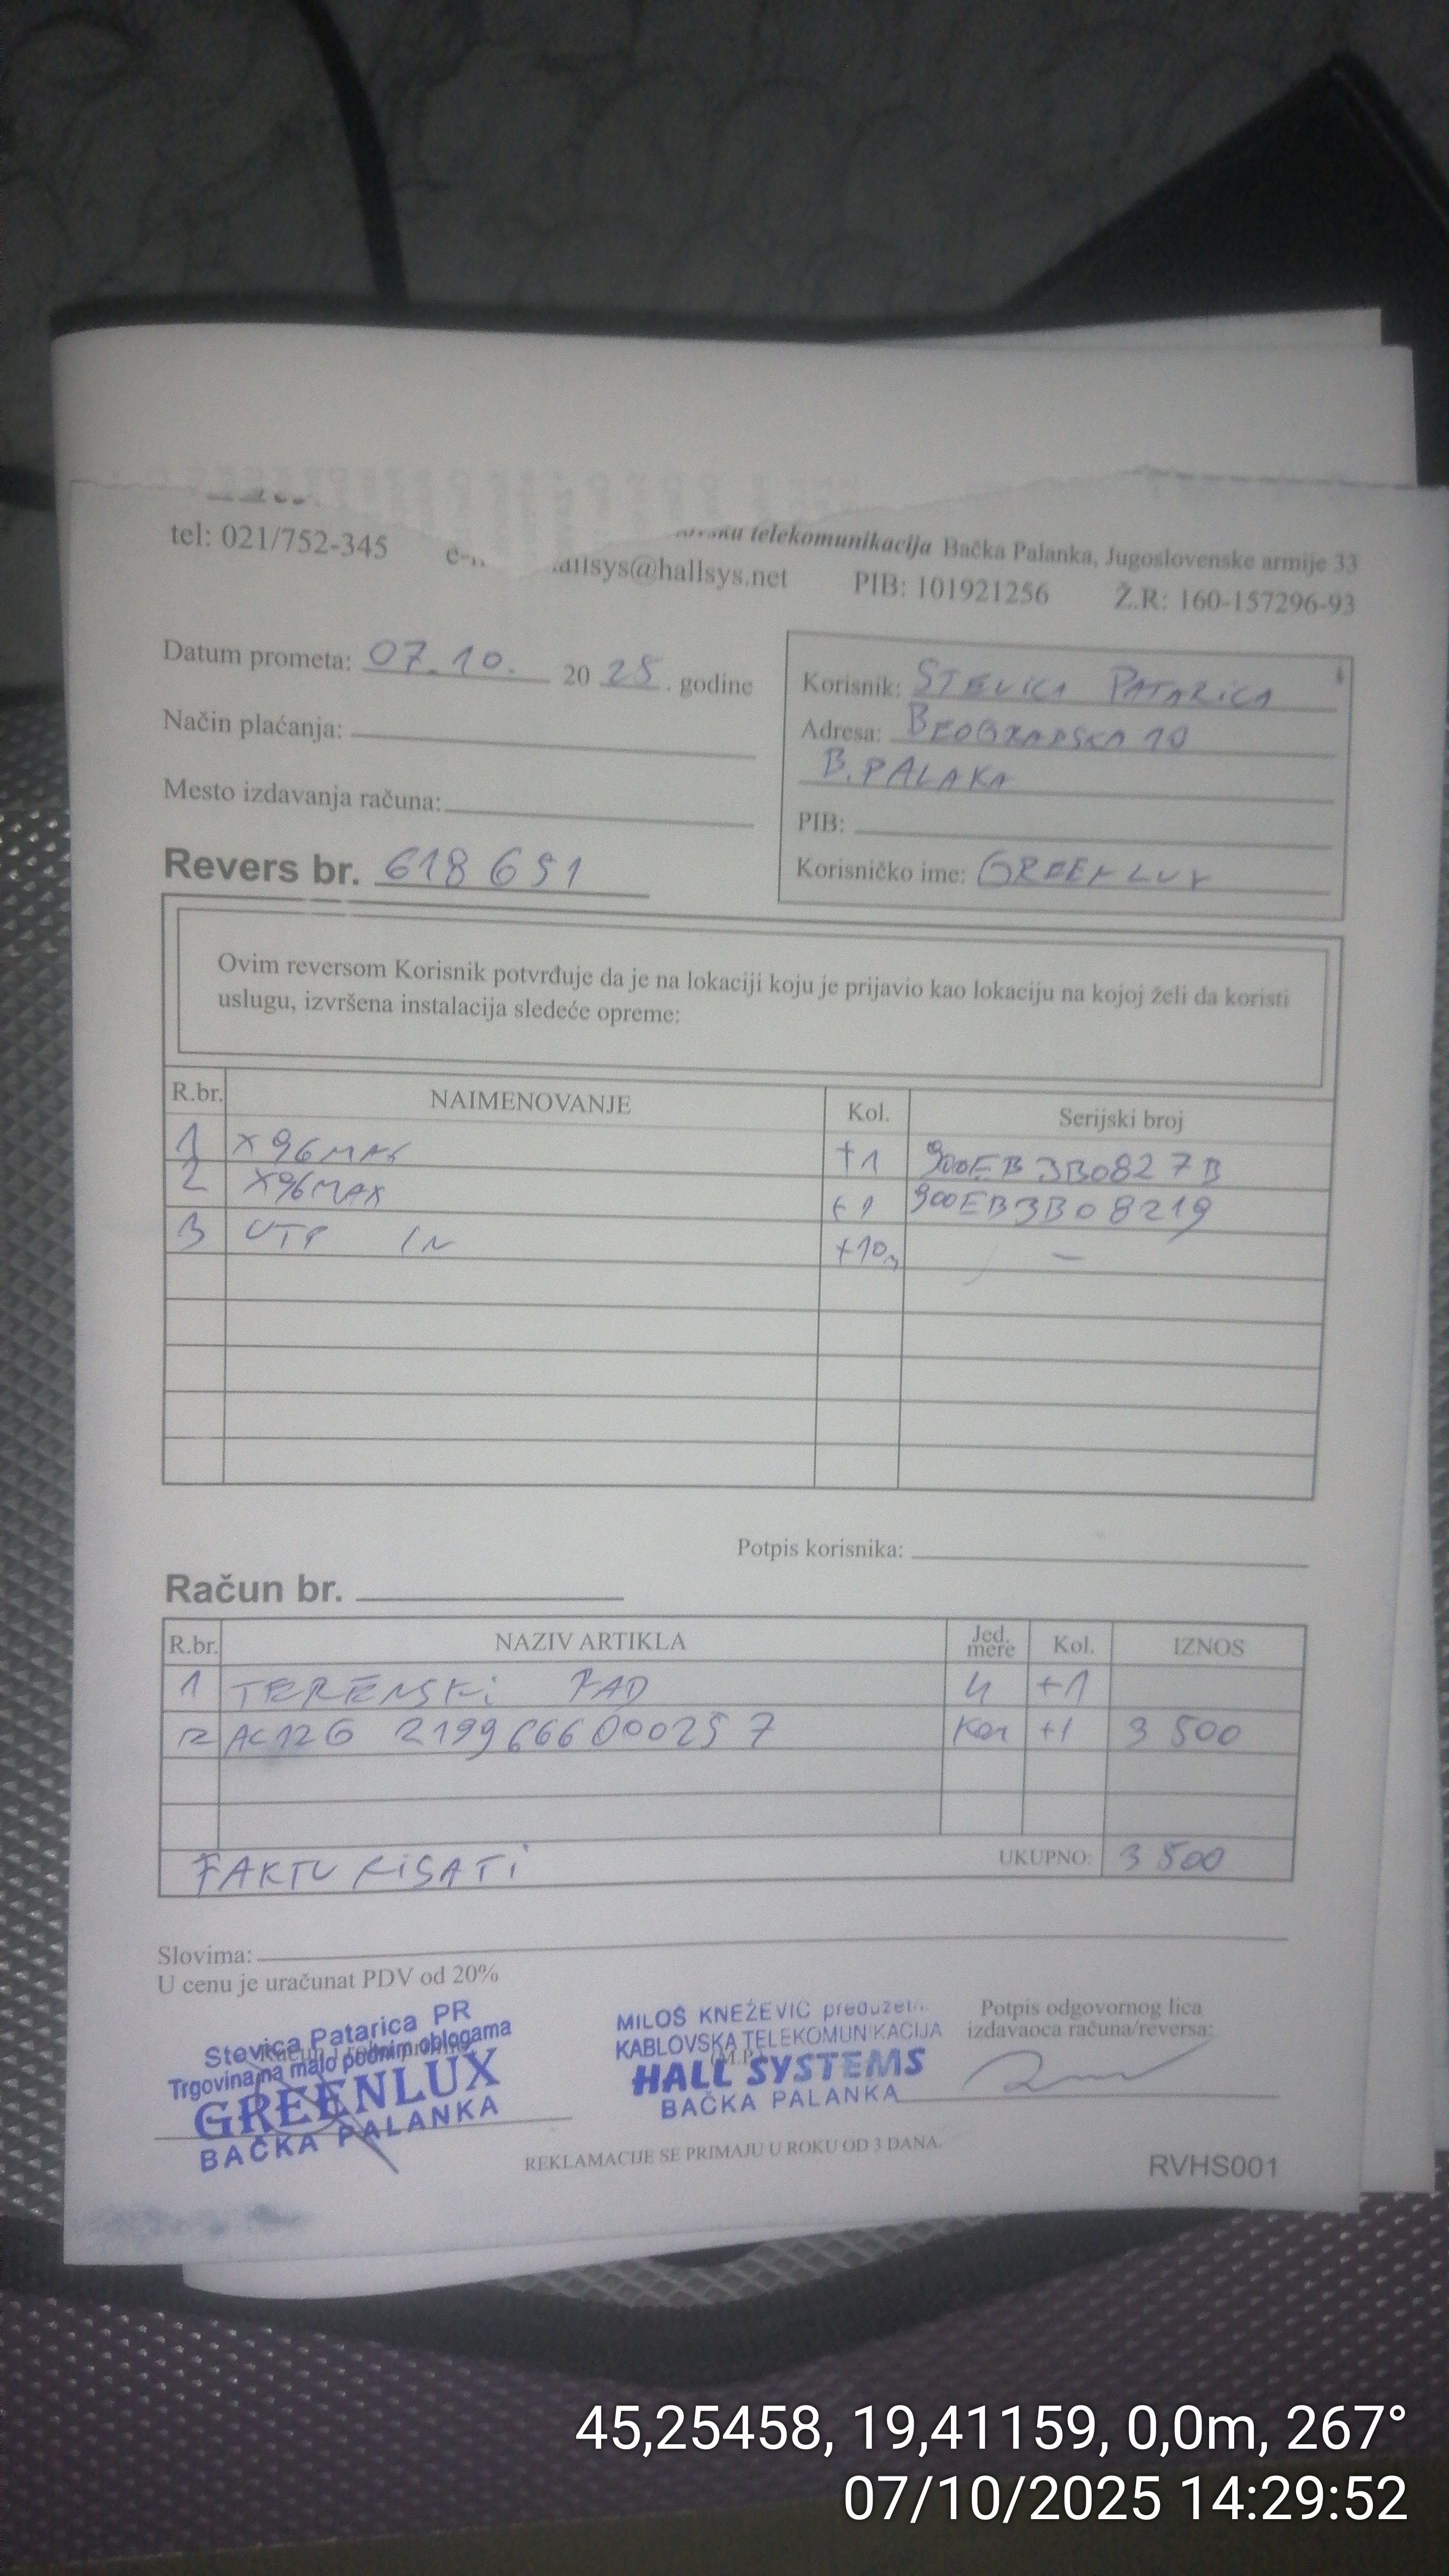 telekomunikacija Bačka Palanka, Jugoslovenske armije 33
tel: 021/752-345 allsys@hallsys.net PIB: 101921256 Ž.R: 160-157296-93
Datum prometa: 07.10. 20 25. godine
Način plaćanja:
Mesto izdavanja računa:
Revers br. 618 651
Korisnik: STEVICA PATARICA
Adresa: BEOGRADSKA 10
B. PALAKA
PIB:
Korisničko ime: GREENLUX
Ovim reversom Korisnik potvrđuje da je na lokaciji koju je prijavio kao lokaciju na kojoj želi da koristi
uslugu, izvršena instalacija sledeće opreme:
R.br. NAIMENOVANJE Kol. Serijski broj
1 X96MAX +1 900EB3B0827B
2 X96MAX +1 900EB3B08219
3 UTP IN +10m –
Potpis korisnika:
Račun br.
R.br. NAZIV ARTIKLA Jed. mere Kol. IZNOS
1 TERENSKI RAD h +1
2 AC12G 2199666000257 Kom +1 3 500
FAKTURISATI UKUPNO: 3 500
Slovima:
U cenu je uračunat PDV od 20%
Stevica Patarica PR
Trgovina na malo podnim oblogama
GREENLUX
BAČKA PALANKA
MILOŠ KNEŽEVIĆ preduzetn.
KABLOVSKA TELEKOMUNIKACIJA
(M.P.)
HALL SYSTEMS
BAČKA PALANKA
Potpis odgovornog lica
izdavaoca računa/reversa:
REKLAMACIJE SE PRIMAJU U ROKU OD 3 DANA.
RVHS001
45,25458, 19,41159, 0,0m, 267°
07/10/2025 14:29:52